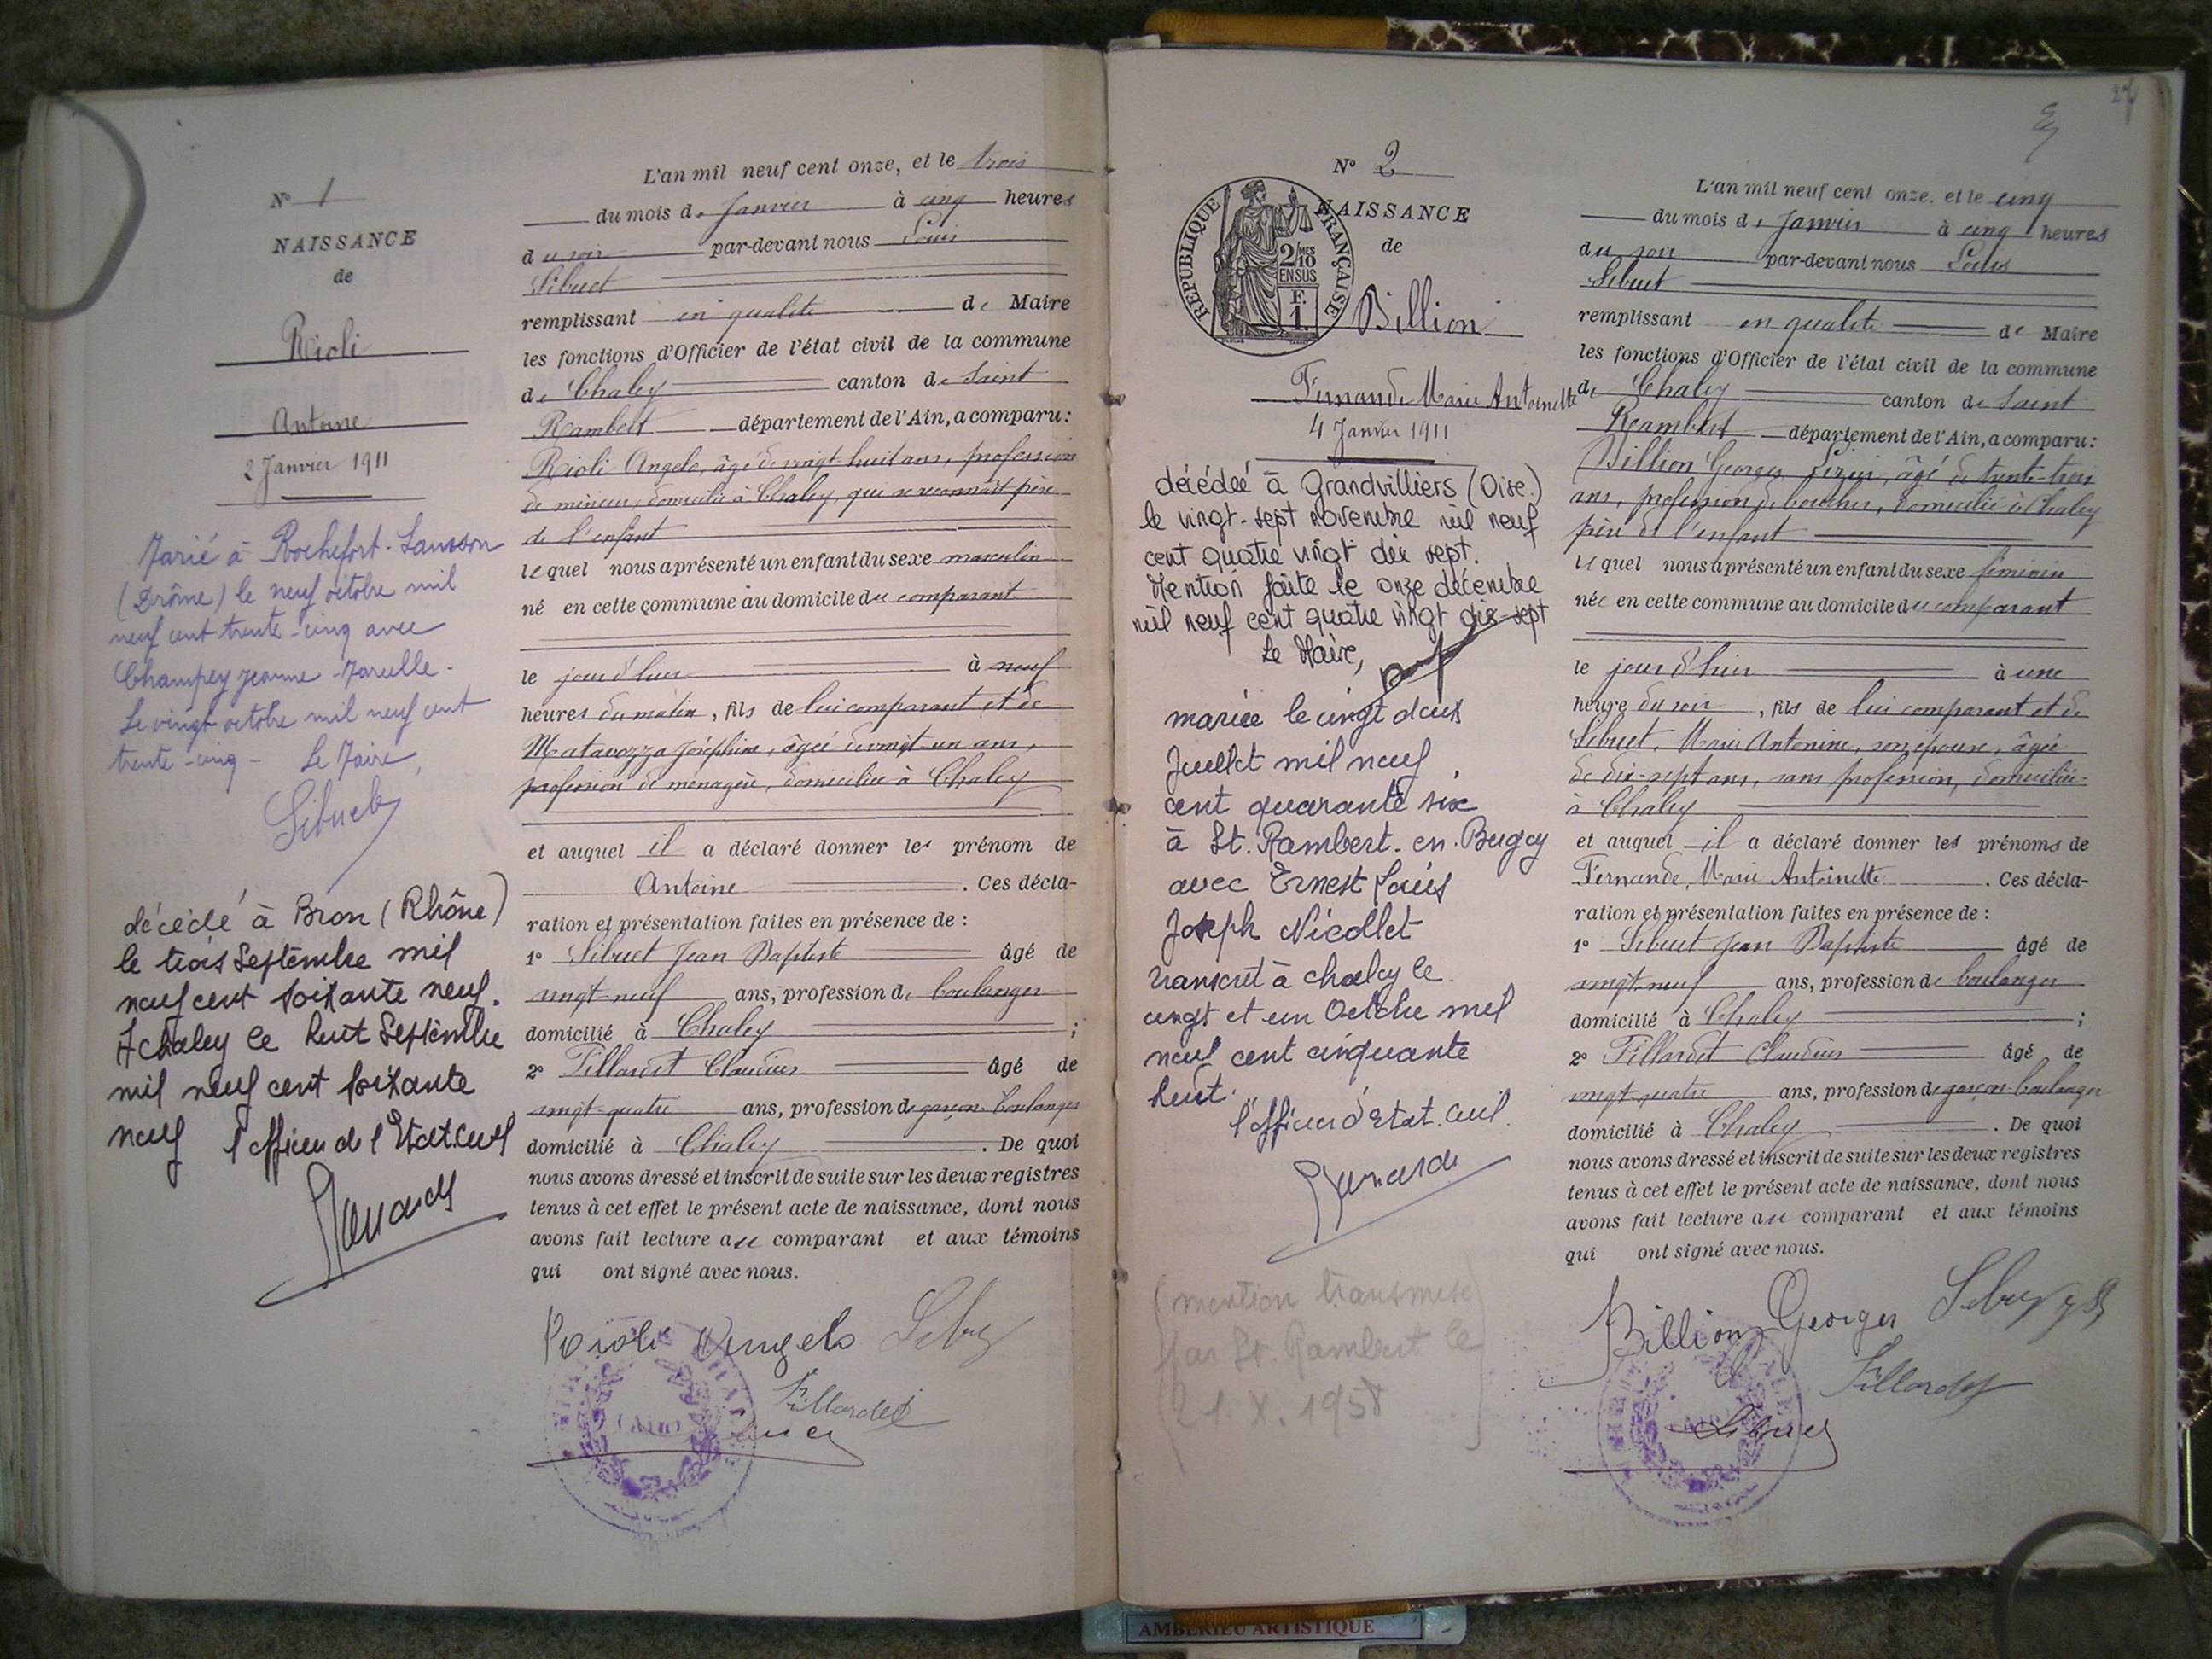 N° 1
NAISSANCE
de
Rioli
Antoine
2 Janvier 1911
Marié à Rochefort-Sansson
(Drôme) le neuf octobre mil
neuf cent trente-cinq avec
Champey Jeanne Marcelle.
Le vingt octobre mil neuf cent
trente-cinq - Le Maire,
Sibuet
décédé à Bron (Rhône)
le trois Septembre mil
neuf cent soixante neuf.
A chaley le huit Septembre
mil neuf cent soixante
neuf l'officier de l'Etat civil
L'an mil neuf cent onze, et le trois
du mois de Janvier à cinq heures
du soir par-devant nous Louis
Sibuet
remplissant en qualité de Maire
les fonctions d'Officier de l'état civil de la commune
de Chaley canton de Saint
Rambert département de l'Ain, a comparu :
Rioli Angelo, âgé de vingt-huit ans, profession
de mineur, domicilié à Chaley, qui se reconnaît père
de l'enfant
lequel nous a présenté un enfant du sexe masculin
né en cette commune au domicile du comparant
le jour d'hier à neuf
heures du matin, fils de lui comparant et de
Matavozza Joséphine, âgée de vingt-un ans,
profession de ménagère, domiciliée à Chaley
et auquel il a déclaré donner les prénom de
Antoine . Ces décla-
ration et présentation faites en présence de :
1° Sibuet Jean Baptiste âgé de
vingt-neuf ans, profession de boulanger
domicilié à Chaley ;
2° Tillardet Claudius âgé de
vingt-quatre ans, profession de garçon-boulanger
domicilié à Chaley . De quoi
nous avons dressé et inscrit de suite sur les deux registres
tenus à cet effet le présent acte de naissance, dont nous
avons fait lecture au comparant et aux témoins
qui ont signé avec nous.
Rioli Angelo Sibuet
Tillardet
N° 2
NAISSANCE
de
RÉPUBLIQUE FRANÇAISE
2/10 EN SUS
F. 1.
Billion
Fernande Marie Antoinette
4 Janvier 1911
décédée à Grandvilliers (Oise.)
le vingt-sept novembre mil neuf
cent quatre vingt dix sept.
Mention faite le onze décembre
mil neuf cent quatre vingt dix-sept
Le Maire,
mariée le vingt deux
Juillet mil neuf
cent quarante six
à St. Rambert-en-Bugey
avec Ernest Louis
Joseph Nicollet
transcrit à chaley le
vingt et un Octobre mil
neuf cent cinquante
huit.
l'officier d'Etat civil.
(mention transmise
par St. Rambert le
21. X. 1958)
L'an mil neuf cent onze, et le cinq
du mois de Janvier à cinq heures
du soir par-devant nous Louis
Sibuet
remplissant en qualité de Maire
les fonctions d'Officier de l'état civil de la commune
de Chaley canton de Saint
Rambert département de l'Ain, a comparu :
Billion Georges, âgé de trente-trois
ans, profession de boucher, domicilié à Chaley
père de l'enfant
lequel nous a présenté un enfant du sexe féminin
née en cette commune au domicile du comparant
le jour d'hier à une
heure du soir, fils de lui comparant et de
Sibuet, Marie Antonine, son épouse, âgée
de dix-sept ans, sans profession, domiciliée
à Chaley
et auquel il a déclaré donner les prénoms de
Fernande, Marie Antoinette . Ces décla-
ration et présentation faites en présence de :
1° Sibuet Jean Baptiste âgé de
vingt-neuf ans, profession de boulanger
domicilié à Chaley ;
2° Tillardet Claudius âgé de
vingt-quatre ans, profession de garçon-boulanger
domicilié à Chaley . De quoi
nous avons dressé et inscrit de suite sur les deux registres
tenus à cet effet le présent acte de naissance, dont nous
avons fait lecture au comparant et aux témoins
qui ont signé avec nous.
Billion Georges Sibuet
Tillardet
Sibuet
AMBERIEU ARTISTIQUE